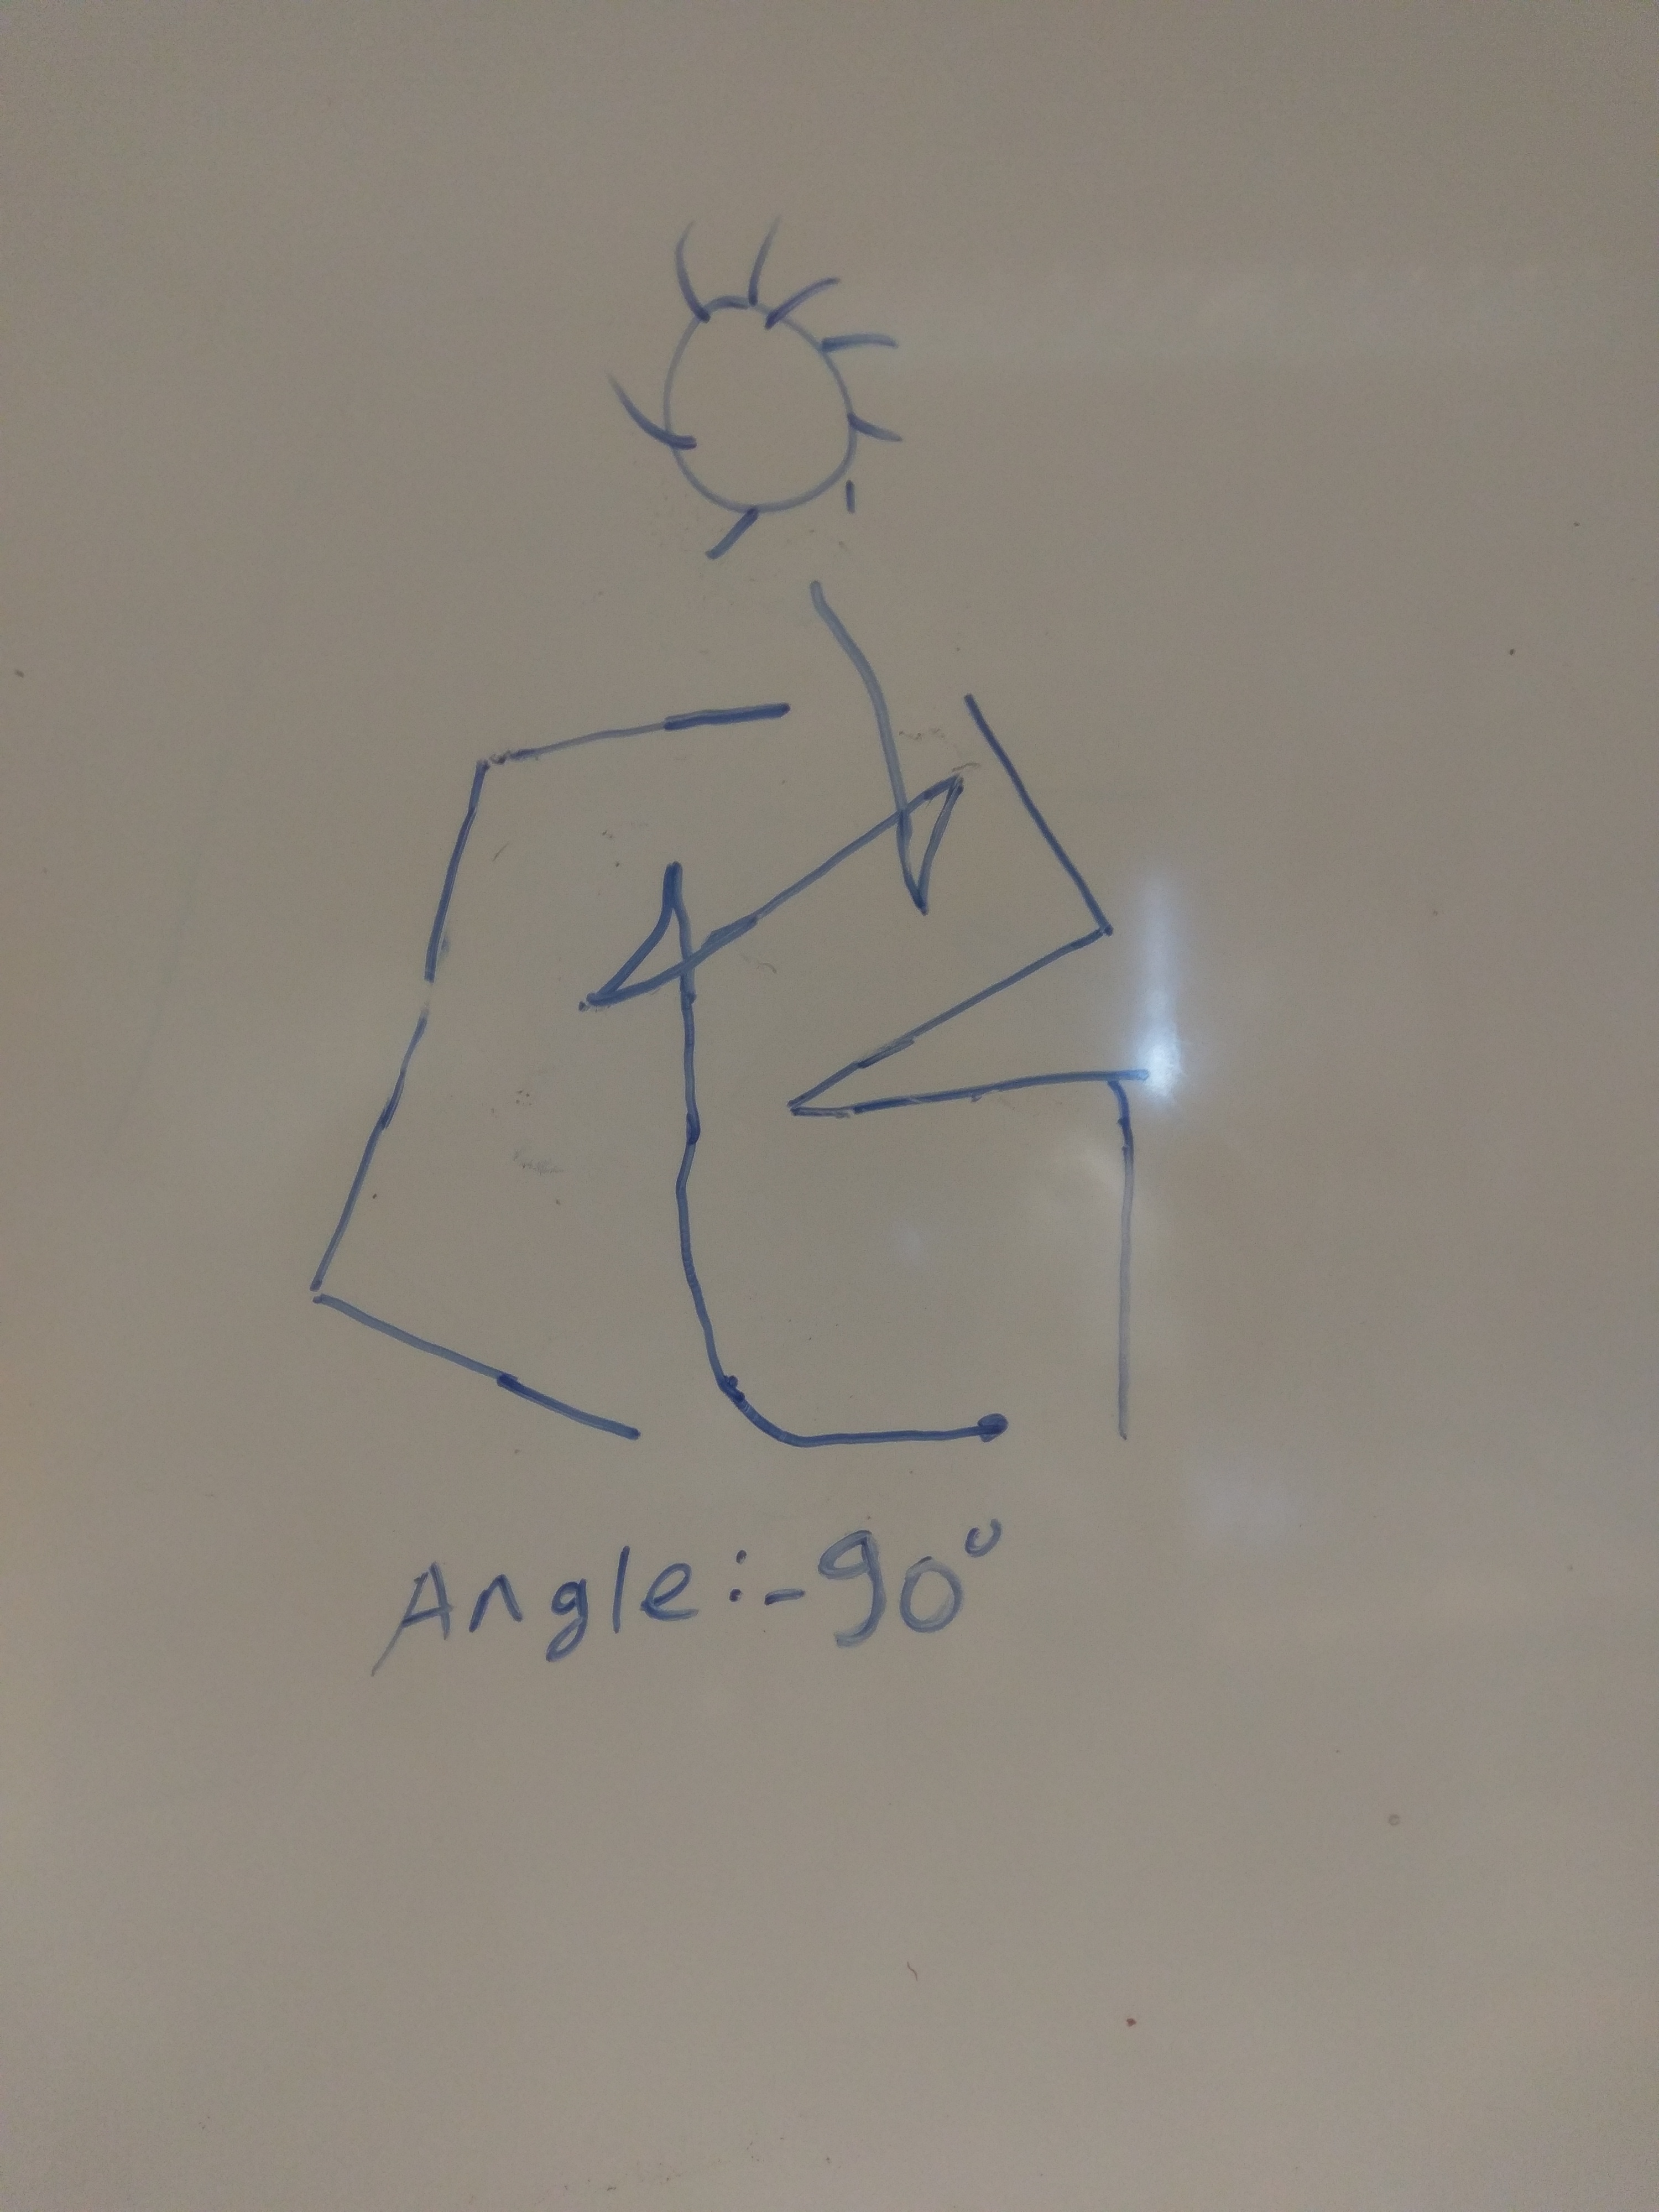 Angle:-90°